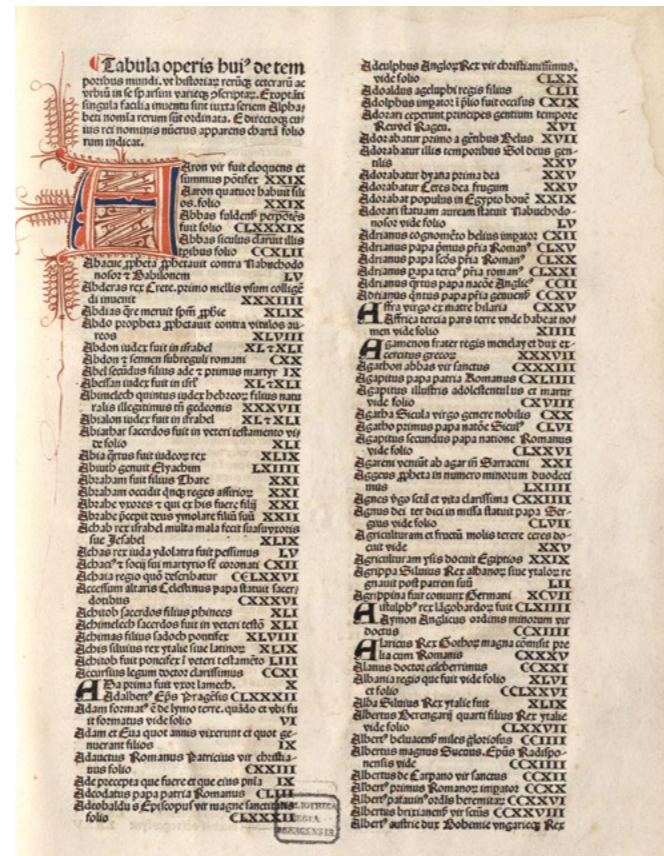 Tabula operis hui⁹ de tem
poribus mundi. vt historiaꝝ rerūqꝫ ceterarū ac
vrbiū in se sparsim varieqꝫ ↄscriptaꝝ. Exoptāti
singula facilia inuentu sint iuxta seriem Alpha
beti nomīa rerum sūt ordinata. E directoqꝫ cu
ius rei nominis nūerus apparens chartā folio
rum indicat.
Aaron vir fuit eloquens et
summus pōtifex XXIX
Aaron quatuor habuit fili
os. folio XXIX
Abbas fuldens perpōtēs
fuit folio CLXXXIX
Abbas siculus claruit illis
tpibus folio CCXLII
Abacuc ꝓpheta ꝓphetauit contra Nabuchodo
nosor ⁊ Babilonem LV
Abderas rex Crete. primo mellis vsum colligē
di inuenit XXXIIII
Abdias qre meruit spm ꝓphie XLIX
Abdo propheta ꝓphetauit contra vitulos au-
reos XLVIII
Abdon iudex fuit in israhel XL⁊XLI
Abdon ⁊ sennen subreguli romani CXX
Abel secūdus filius ade ⁊ primus martyr IX
Abessan iudex fuit in isrl XL⁊XLI
Abimelech quintus iudex hebreoꝝ filius natu
ralis illegitimus tn gedeonis XXXVII
Abialon iudex fuit in israhel XL⁊XLI
Abiathar sacerdos fuit in veteri testamento vi-
de folio XLI
Abia qrtus fuit iudeoꝝ rex XLIX
Abiuth genuit Elyachim LXIIII
Abraham fuit filius Thare XXI
Abraham occidit qnqꝫ reges assirioꝝ XXI
Abrahe vxores ⁊ qui ex his fuere filij XXI
Abrahe p̄cepit deus ymolare filiū suū XXII
Achab rex israhel multa mala fecit suasu vxoris
sue Jesabel XLIX
Achas rex iuda ydolatra fuit pessimus LV
Achaci⁹ ⁊ socij sui martyrio sūt coronati CXII
Achaia regio quō describatur CCLXXVI
Accessum altaris Celestinus papa statuit sacer/
dotibus CXXXVI
Achitob sacerdos filius phinees XLI
Achimelech sacerdos fuit in veteri testō XLI
Achimas filius sadoch pontifex XLVIII
Achis siluius rex ytalie siue latinoꝝ XLIX
Achitob fuit poncifex ī veteri testamēto LIII
Accursius legum doctor clarissimus CCXI
Ada prima fuit vxor lamech. X
Adalbert⁹ Ep̄s Pragēsis CLXXXIII
Adam format⁹ ē de lymo terre. quādo et vbi fu
it formatus vide folio VI
Adam et Eua quot annis vixerunt et quot ge-
nuerant filios IX
Adauctus Romanus Patricius vir christia-
nus folio CXXIIII
Ade precepta que fuere et que eius pnīa IX
Adeodatus papa patria Romanus CLIII
Adeobaldus Episcopus vir magne sanctitatis
folio CLXXXII
Adeulphus Angloꝝ Rex vir christianissimus.
vide folio CLXX
Adoaldus agelulphi regis filius CLII
Adolphus impator ī plio fuit occisus CXIX
Adorari ceperunt principes gentium tempore
Reuuel Rageu. XVI
Adorabatur primo a gētibus Belus XVII
Adorabatur illis temporibus Sol deus gen-
tilis XXV
Adorabatur dyana prima dea XXV
Adorabatur Ceres dea frugum XXV
Adorabat populus in Egypto bouē XXIX
Adorari statuam auream statuit Nabuchodo-
nosor vide folio LV
Adrianus cognomēto helius impator CXII
Adrianus papa p̄mus pria Roman⁹ CLXV
Adrianus papa scds pria Roman⁹ CLXX
Adrianus papa terci⁹ pria roman⁹ CLXXI
Adrianus qrtus papa nacōe Anglic⁹ CCII
Adrianus qntus papa pria genuens CCXV
Affra virgo ex matre hilaria CXXV
Affrica tercia pars terre vnde habeat no/
men vide folio XIIII
Agamenon frater regis menelay et dux ex-
cercitus grecoꝝ XXXVII
Agathon abbas vir sanctus CXXXIII
Agapitus papa patria Romanus CXLIIII
Agapitus illustris adolescentulus et martir
vide folio CXVIII
Agatha Sicula virgo genere nobilis CXX
Agatho primus papa natōe Sicul⁹ CLVI
Agapitus secundus papa natione Romanus
vide folio CLXXVI
Agareni veniūt ab agar īn Sarraceni XXI
Aggeus ꝓpheta in numero minorum duodeci
mus LXIIII
Agnes v̄go sctā et vita clarissima CXXIIII
Agnus dei ter dici in missa statuit papa Ser-
gius vide folio CLVII
Agriculturam et fructū molis terere ceres do-
cuit vide XXV
Agriculturam ysis docuit Egiptios XXIX
Agrippa Siluius Rex albanoꝝ siue ytaloꝝ re
gnauit post patrem suū LII
Agrippina fuit coniunx Germani XCVII
Aistulph⁹ rex lāgobardoꝝ fuit CLXIIII
Aymon Anglicus ordinis minorum vir
doctus CCXIIII
Alaricus Rex Gothoꝝ magna cōmisit pre
lia cum Romanis CXXXV
Alanus doctor celeberrimus CCXXI
Albania regio que fuit vide folio XLVI
et folio CCLXXVI
Alba Siluius Rex ytalie fuit XLIX
Albertus Berengarij quarti filius Rex ytalie
vide folio CLXXVII
Albert⁹ beluacens miles gloriosus CCIIII
Albertus magnus Sueuus. Epūs Radispo-
nensis vide CCXIIII
Albertus de Carpano vir sanctus CCXII
Albert⁹ primus Romanoꝝ impator CCXX
Albert⁹ patauin⁹ ordis heremitaꝝ CCXXVI
Albertus brixianens vir sciēs CCXXVI
Albert⁹ austrie dux Bohemie vngarieqꝫ Rex
BIBLIOTHECA
REGIA